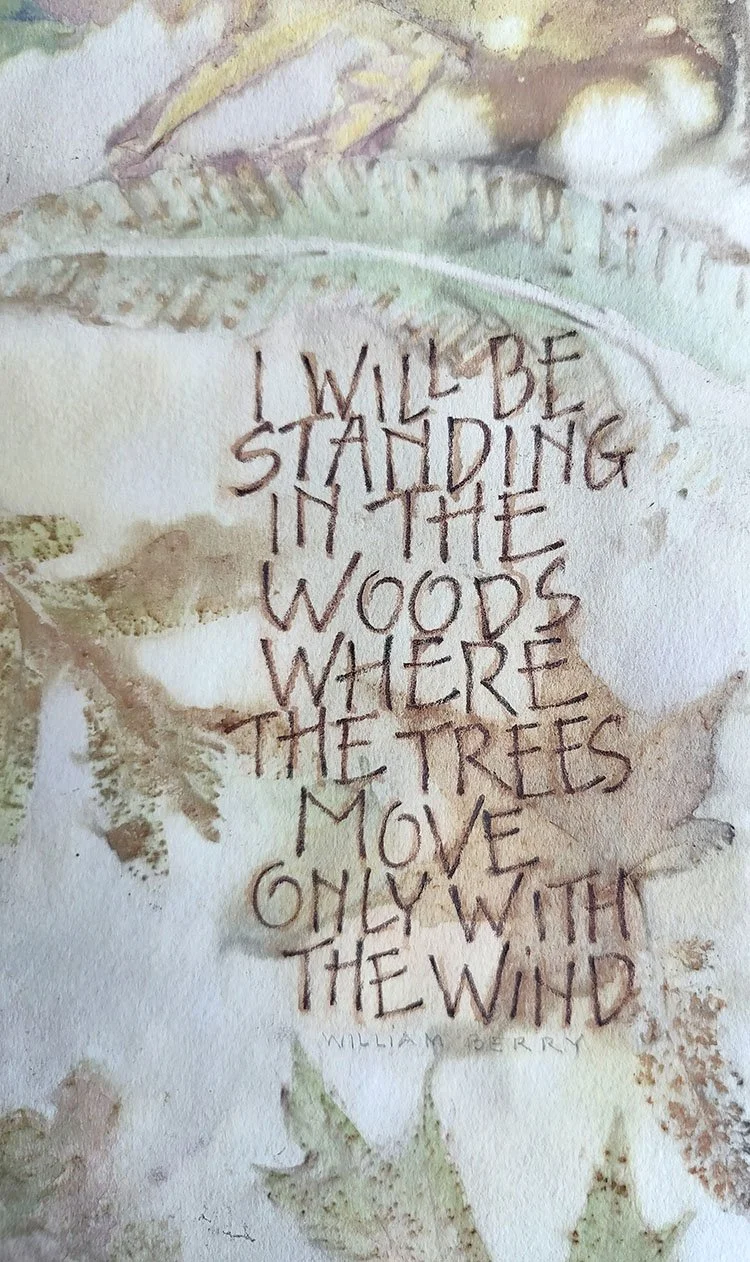 I WILL BE
STANDING
IN THE
WOODS
WHERE
THE TREES
MOVE
ONLY WITH
THE WIND
WILLIAM BERRY